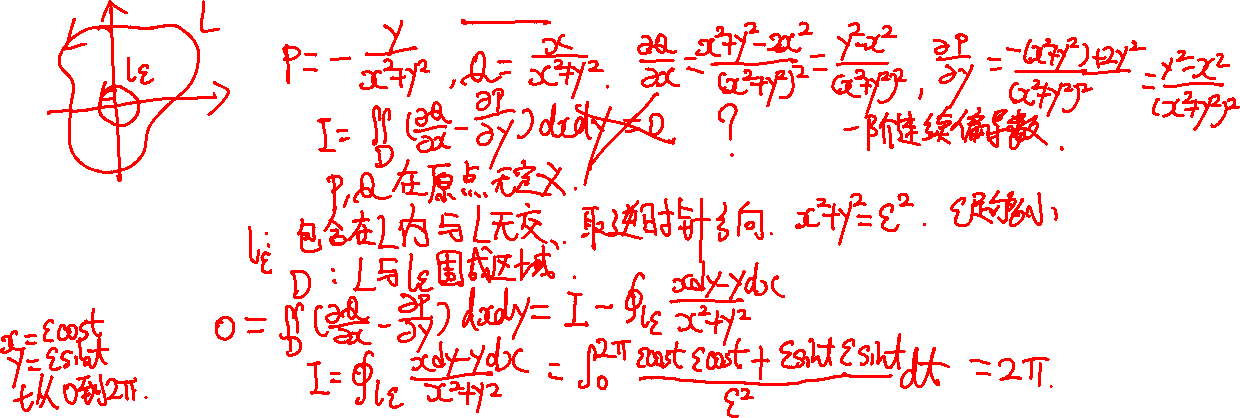 L
lε
P = -y/(x²+y²), Q = x/(x²+y²). ∂Q/∂x = (x²+y²-2x²)/(x²+y²)² = (y²-x²)/(x²+y²)², ∂P/∂y = (-(x²+y²)+2y²)/(x²+y²)² = (y²-x²)/(x²+y²)²
I = ∬_D (∂Q/∂x - ∂P/∂y) dxdy = 0 ? 一阶连续偏导数.
P,Q在原点无定义.
lε: 包含在L内与L无交、取逆时针方向. x²+y²=ε². ε足够小,
D: L与lε围成区域.
0 = ∬_D (∂Q/∂x - ∂P/∂y) dxdy = I - ∮_lε (xdy-ydx)/(x²+y²)
I = ∮_lε (xdy-ydx)/(x²+y²) = ∫₀^2π (εcost εcost + εsint εsint)/ε² dt = 2π.
x=εcost
y=εsint
t从0到2π.